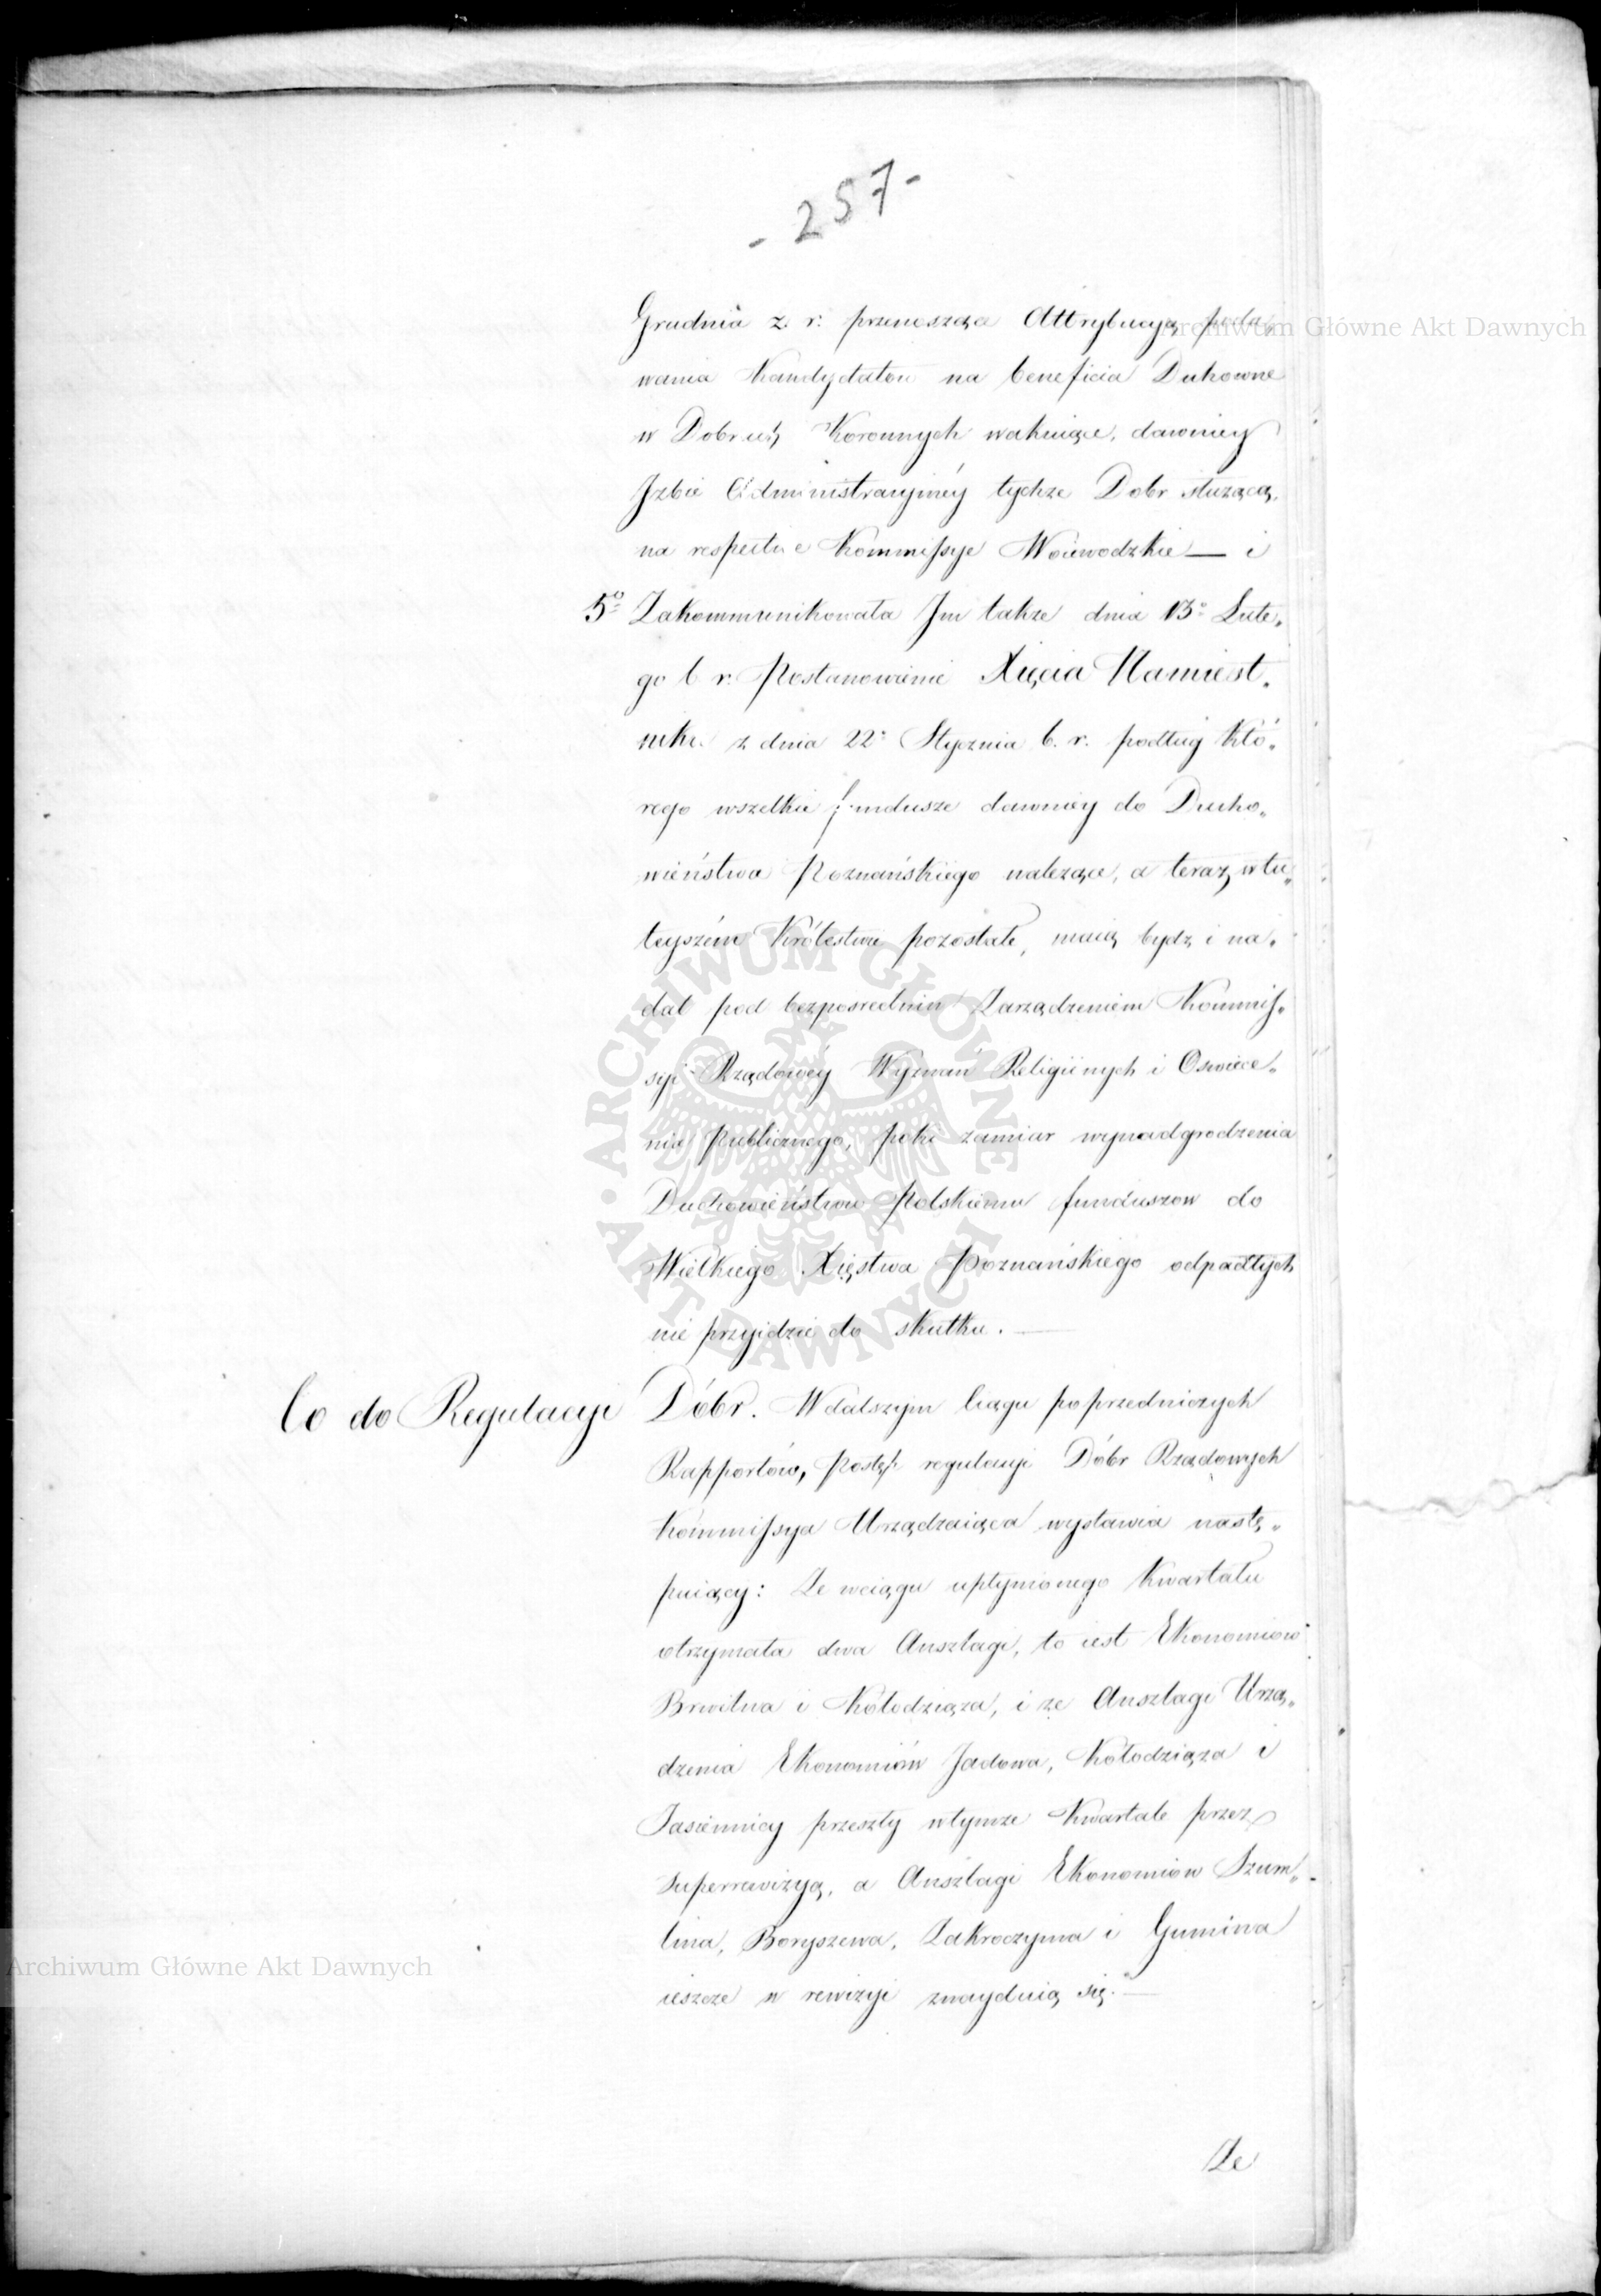 - 257 -
Grudnia z. r. przenosząca Attrybucyą poda„
wania Kandydatów na beneficia Duhowne
w Dobrach Koronnych wakuiące, dawniey
Jzbie Administracyinéy tychże Dobr służącą,
na respective Kommissye Woiewodzkie — i
5° Zakommunikowała Jm także dnia 13° Lute„
go b r. Postanowienie Xięcia Namiest„
nika z dnia 22° Stycznia b. r. podług Któ„
rego wszelkie fundusze dawniey do Ducho„
wieństwa Poznańskiego należące, a teraz w tu„
teyszém Królestwie pozostałe, maią bydź i na„
dal pod bezpośrednim Zarządzeniem Kommis„
syi Rządowéy Wyznań Religiinych i Oswiece„
nia Publicznego, póki zamiar wynadgrodzenia
Duchowieństwu Polskiemu funduszow do
Wielkiego Xięstwa Poznańskiego odpadłych
nie przyidzie do skutku. —
Co do Regulacyi Dóbr. W dalszym Ciągu poprzedniczych
Rapportów, Postęp regulacyi Dóbr Rządowych
Kommissya Urządzaiąca wystawia nastę„
puiący: Że w ciągu upłynionego Kwartału
otrzymała dwa Anszlagi, to iest Ekonomiow
Brwilna i Kołodziąża, i że Anszlagi Urzą„
dzenia Ekonomiów Jadowa, Kołodziąża i
Jasiennicy przeszły w tymże Kwartale przez
Superrewizyą, a Anszlagi Ekonomiow Szum„
lina, Boryszewa, Zakroczyma i Gumina
ieszcze w rewizyi znayduią się. —
Że
Archiwum Główne Akt Dawnych
Archiwum Główne Akt Dawnych
ARCHIWUM GŁÓWNE AKT DAWNYCH